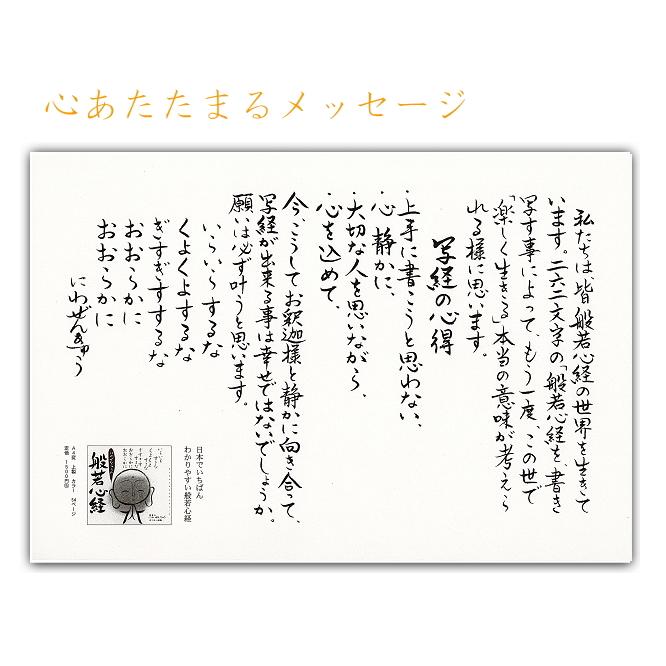 心あたたまるメッセージ
私たちは、皆般若心経の世界を生きて
います。二六二文字の「般若心経を、書き
写す事によって、もう一度、この世で
「楽しく生きる」本当の意味が考えら
れる様に思います。
写経の心得
・上手に書こうと思わない、
・心静かに、
・大切な人を思いながら、
・心を込めて、
今、こうしてお釈迦様と静かに向き合って、
写経が出来る事は幸せではないでしょうか。
願いは必ず叶うと思います。
いらいらするな
くよくよするな
ぎすぎすするな
おおらかに
おおらかに
にわぜんきゅう
日本でいちばん
わかりやすい般若心経
般若心経
A4変 上製 カラー 64ページ
定価 1500円